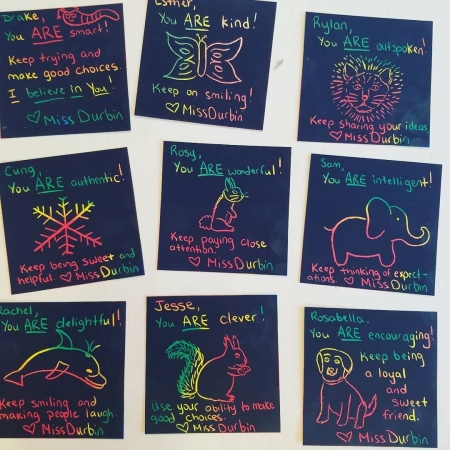 Drake,
You ARE smart!
Keep trying and
make good choices.
I believe in You!
♡ Miss Durbin
Esther,
You ARE kind!
Keep on smiling!
♡ Miss Durbin
Rylan,
You ARE outspoken!
Keep sharing your ideas
♡ Miss Durbin
Cung,
You ARE authentic!
Keep being sweet and
helpful. ♡ Miss Durbin
Rosy,
You ARE wonderful!
Keep paying close
attention.
♡ Miss Durbin
Sam,
You ARE intelligent!
Keep thinking of expect-
ations. ♡ Miss Durbin
Rachel,
You ARE delightful!
Keep smiling and
making people laugh.
♡ Miss Durbin
Jesse,
You ARE clever!
Use your ability to make
good choices.
♡ Miss Durbin
Rosabella,
You ARE encouraging!
Keep being
a loyal
and
sweet
friend.
♡ Miss Durbin